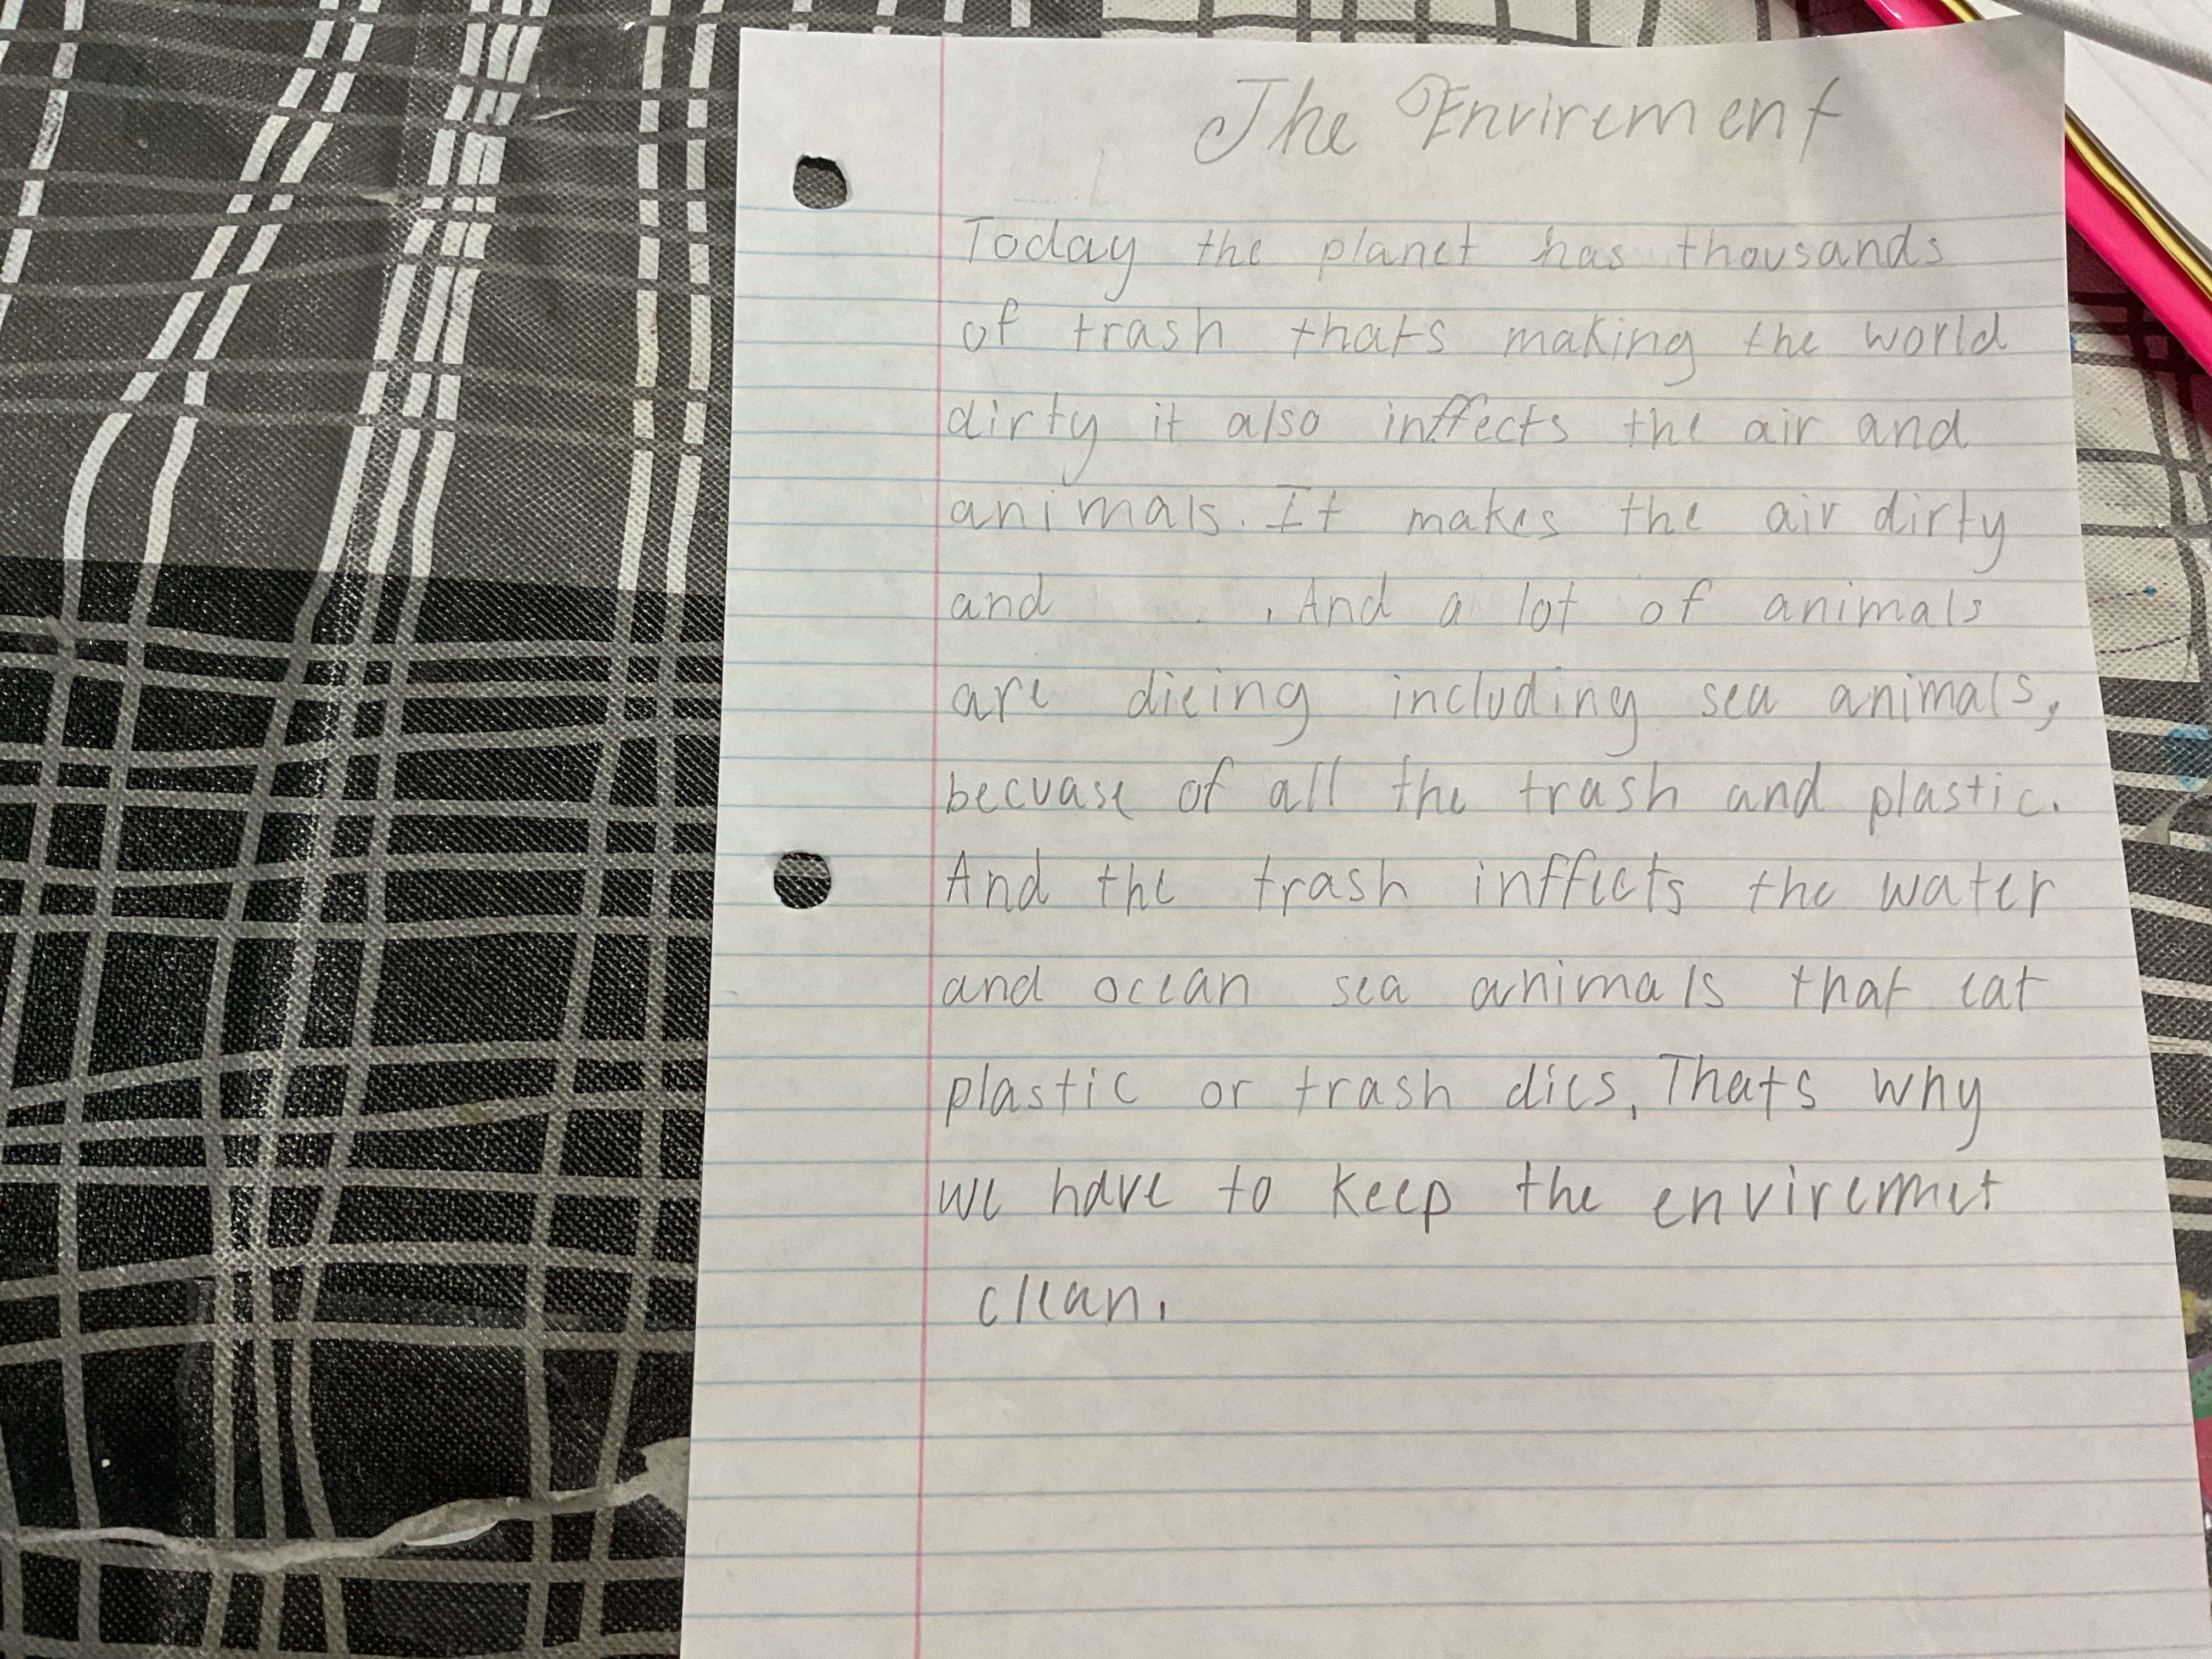 The Envirement
Today the planet has thousands
of trash thats making the world
dirty it also inffects the air and
animals. It makes the air dirty
and . And a lot of animals
are dieing including sea animals,
becuase of all the trash and plastic.
And the trash inffects the water
and ocean sea animals that eat
plastic or trash dies. Thats why
we have to keep the enviremet
clean.